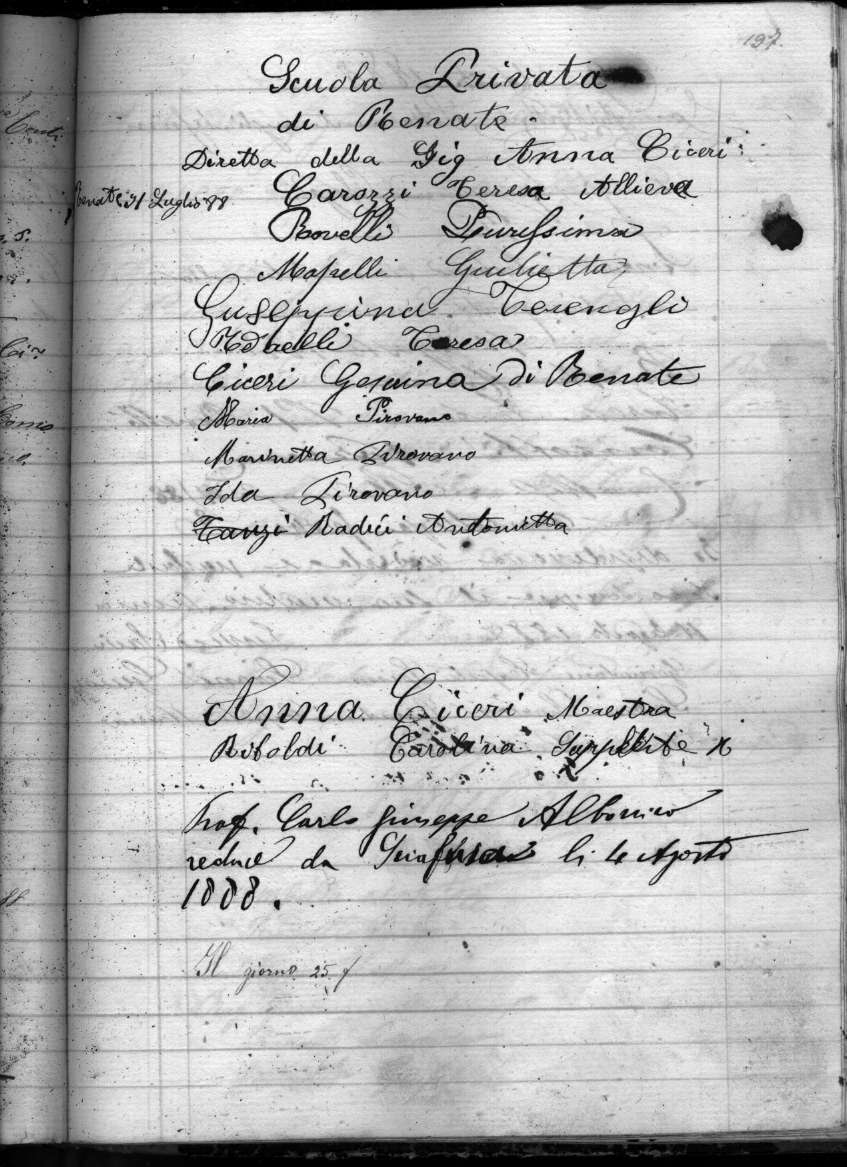 197
Scuola Privata
di Renate.
Diretta della Sig Anna Ciceri
Renate 31 Luglio 88 Carozzi Teresa Allieva
Rovelli Purissima
Mapelli Giulietta
Guseppina Terenghi
Teresa
Ciceri Gesuina di Renate
Maria Pirovano
Marinetta Pirovano
Ida Pirovano
Tanzi Radici Antonietta
Anna Ciceri Maestra
Riboldi Carolina
Prof. Carlo Giuseppe Albonico
reduce da li 4 Agosto
1888.
Il giorno 25